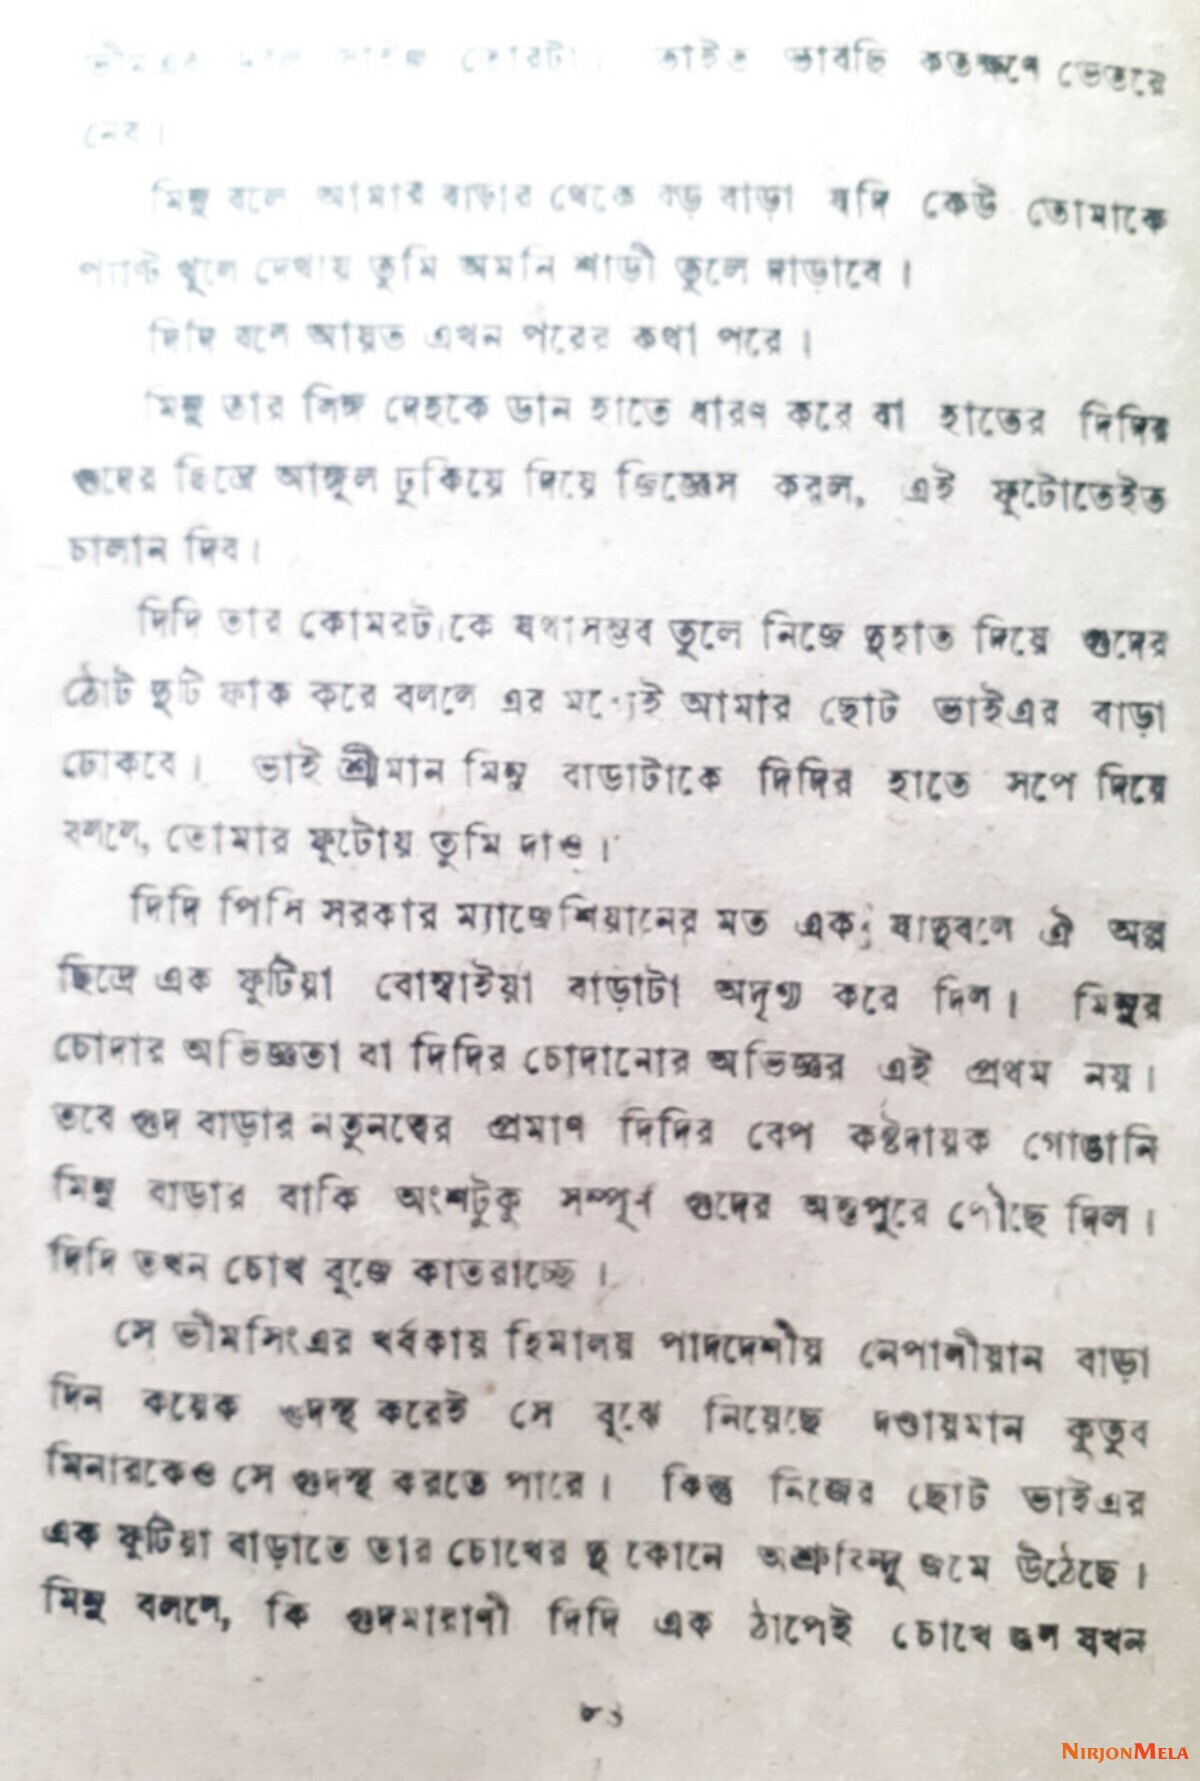 তাইত ভাবছি কতক্ষণে ভেতরে
নেব।
মিন্থু বলে আমার বাড়ার থেকে বড় বাড়া যদি কেউ তোমাকে
প্যান্ট খুলে দেখায় তুমি অমনি শাড়ী তুলে দাড়াবে।
দিদি বলে আয়ত এখন পরের কথা পরে।
মিন্থু তার লিঙ্গ দেহকে ডান হাতে ধারণ করে বা হাতের দিদির
গুদের ছিদ্রে আঙ্গুল ঢুকিয়ে দিয়ে জিজ্ঞেস করল, এই ফুটোতেইত
চালান দিব।
দিদি তার কোমরটাকে যথাসম্ভব তুলে নিজে দুহাত দিয়ে গুদের
ঠোট দুটি ফাক করে বললে এর মধ্যেই আমার ছোট ভাইএর বাড়া
ঢোকবে। ভাই শ্রীমান মিন্থু বাড়াটাকে দিদির হাতে সপে দিয়ে
বললে, তোমার ফুটোয় তুমি দাও।
দিদি পিসি সরকার ম্যাজেশিয়ানের মত যাদুবলে ঐ অল্প
ছিদ্রে এক ফুটিয়া বোম্বাইয়া বাড়াটা অদৃশ্য করে দিল। মিন্থুর
চোদার অভিজ্ঞতা বা দিদির চোদানোর অভিজ্ঞর এই প্রথম নয়।
তবে গুদ বাড়ার নতুনত্বের প্রমাণ দিদির বেপ কষ্টদায়ক গোঙানি
মিন্থু বাড়ার বাকি অংশটুকু সম্পূর্ণ গুদের অন্তপুরে পৌছে দিল।
দিদি তখন চোখ বুজে কাতরাচ্ছে।
সে ভীমসিংএর খর্বকায় হিমালয় পাদদেশীয় নেপালীয়ান বাড়া
দিন কয়েক গুদস্থ করেই সে বুঝে নিয়েছে দণ্ডায়মান কুতুব
মিনারকেও সে গুদস্থ করতে পারে। কিন্তু নিজের ছোট ভাইএর
এক ফুটিয়া বাড়াতে তার চোখের দু কোনে অশ্রুবিন্দু জমে উঠেছে।
মিন্থু বললে, কি গুদমারাণী দিদি এক ঠাপেই চোখে জল যখন
NIRJONMELA